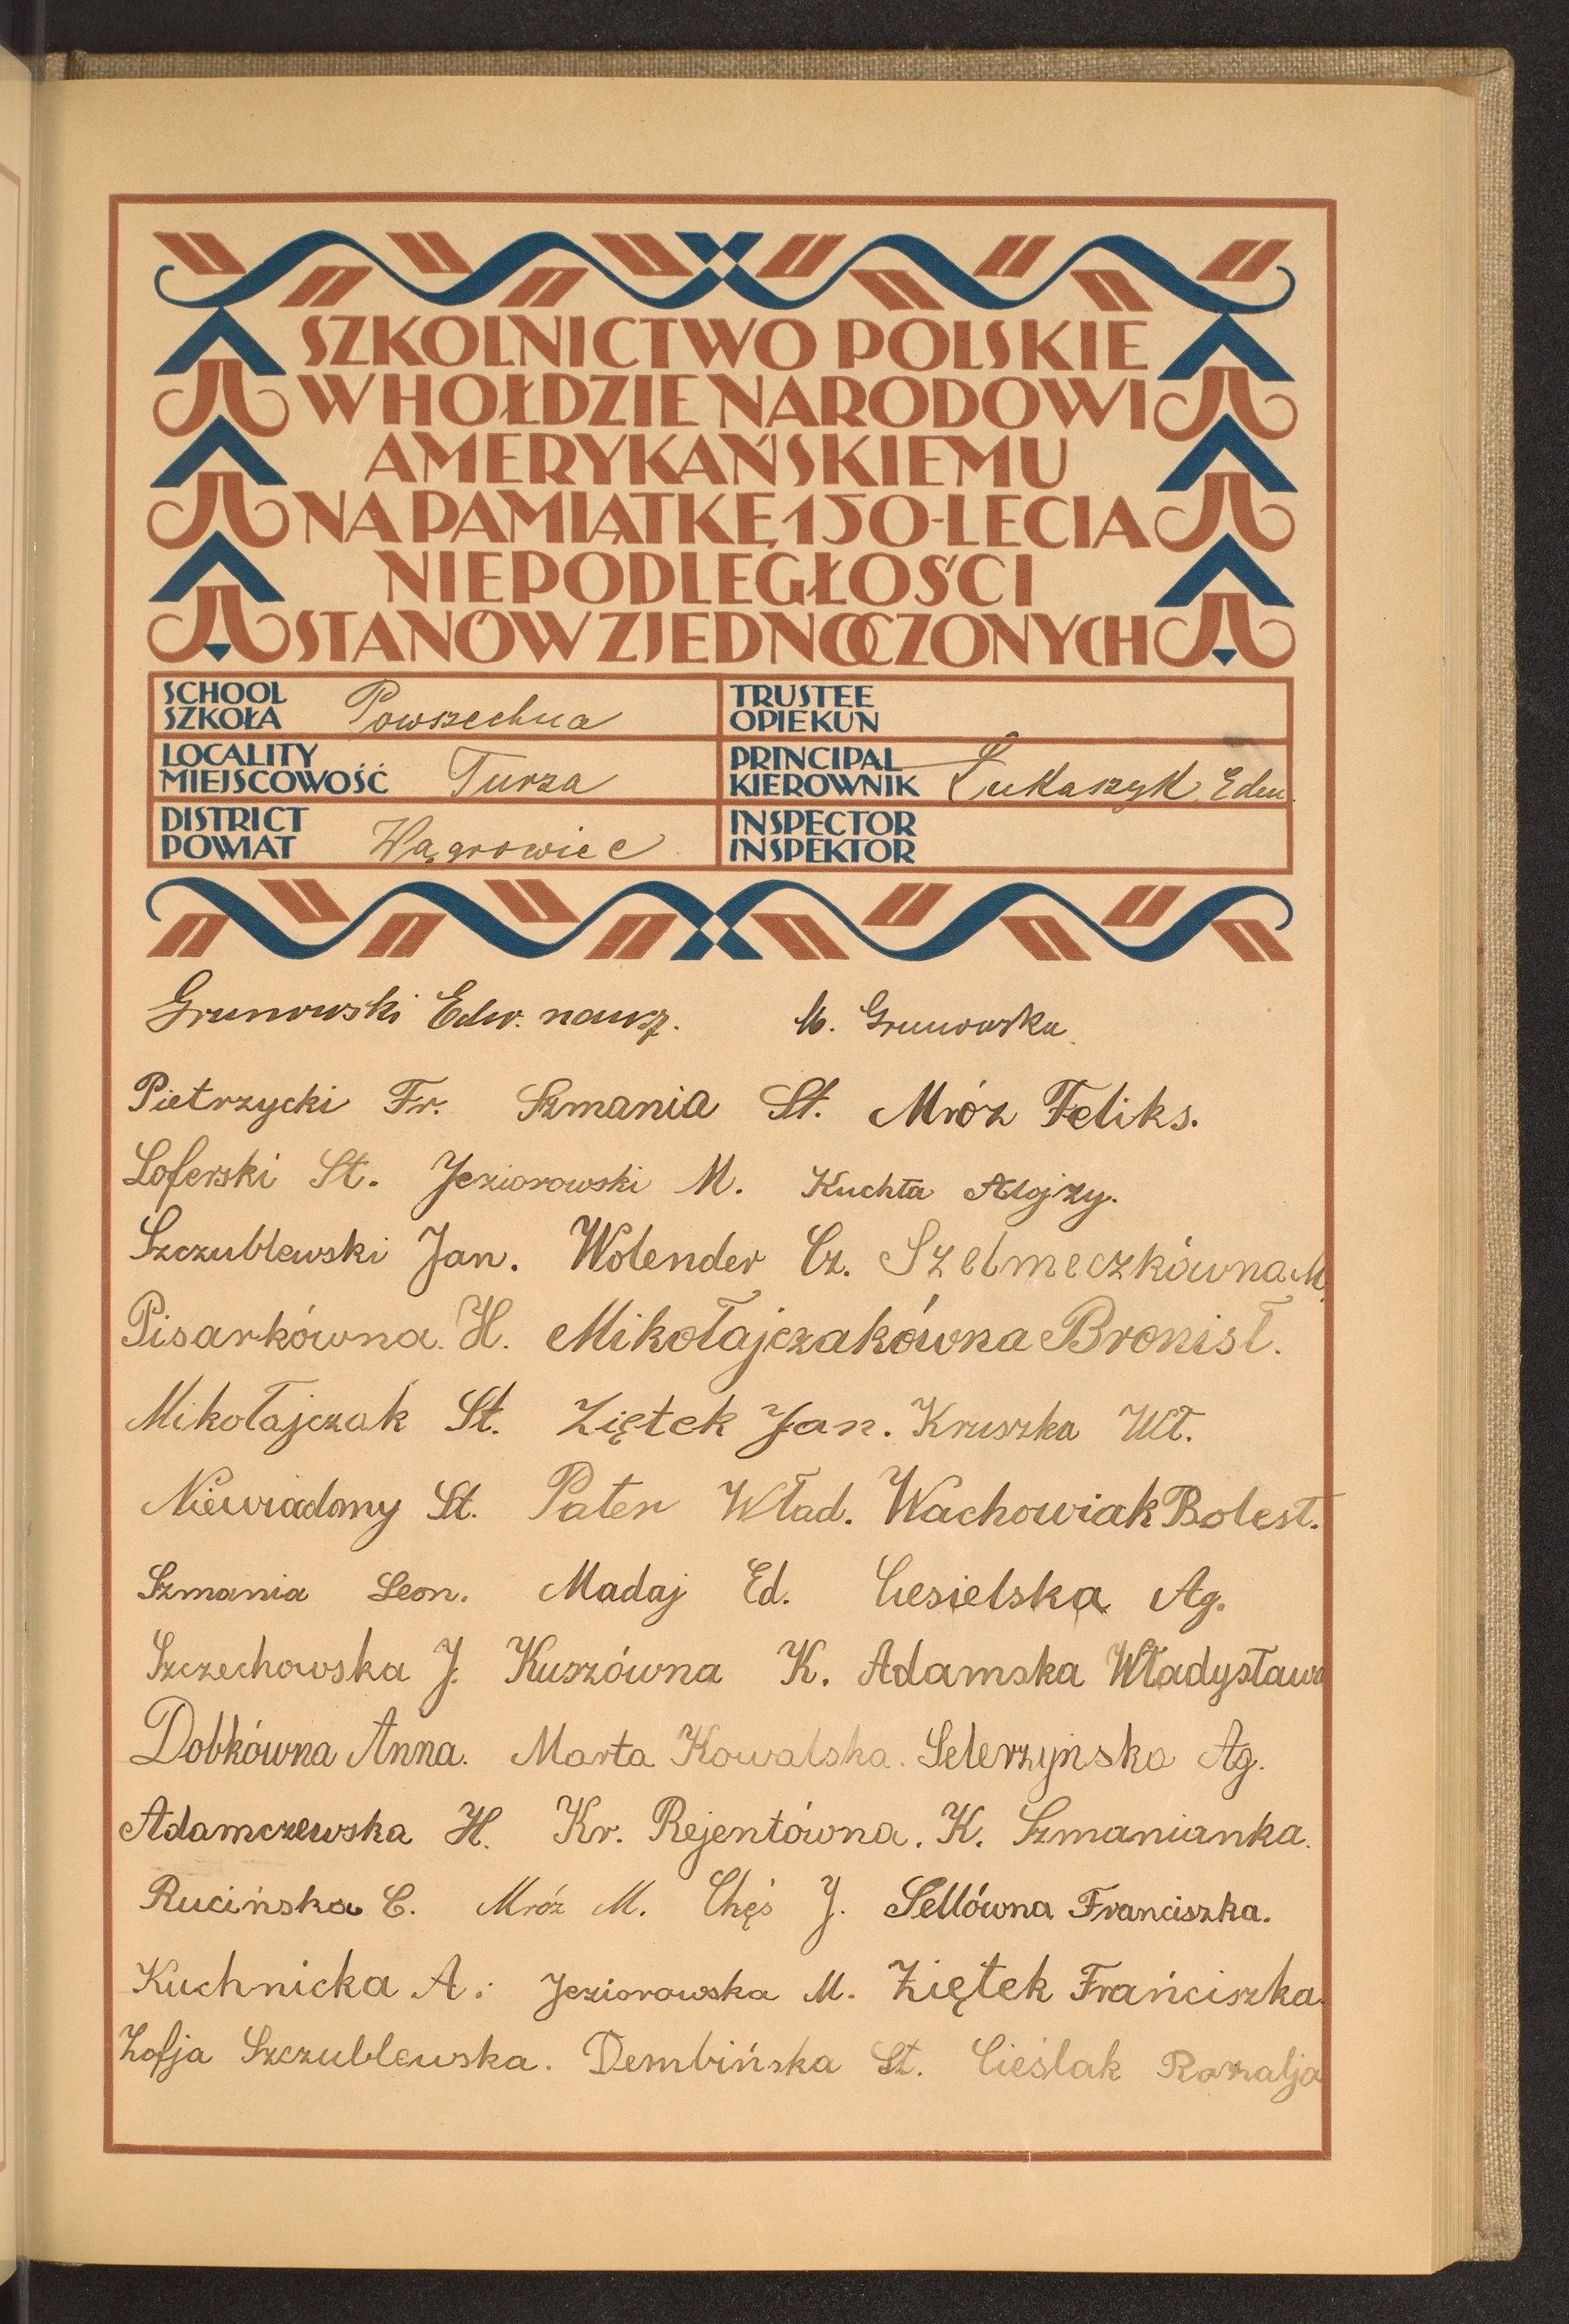 SZKOLNICTWO POLSKIE
W HOŁDZIE NARODOWI
AMERYKAŃSKIEMU
NA PAMIĄTKĘ 150-LECIA
NIEPODLEGŁOŚCI
STANÓW ZJEDNOCZONYCH
SCHOOL
SZKOŁA Powszechna
TRUSTEE
OPIEKUN
LOCALITY
MIEJSCOWOŚĆ Turza
PRINCIPAL
KIEROWNIK Łukaszyk Edm.
DISTRICT
POWIAT Wągrowiec
INSPECTOR
INSPEKTOR
Grunowski Edw. naucz. M. Grunowska
Pietrzycki Fr. Szmania St. Mróz Feliks.
Loferski St. Jeziorowski M. Kuchta Alojzy.
Szczublewski Jan. Wolender Cz. Szelmeczkówna M.
Pisarkówna. H. Mikołajczakówna Bronisł.
Mikołajczak St. Ziętek Jan. Kruszka Wł.
Niewiadomy St. Pater Wład. Wachowiak Bolest.
Szmania Leon. Madaj Ed. Ciesielska Ag.
Szczechowska J. Kuszówna K. Adamska Władysława
Dobkówna Anna. Marta Kowalska. Selerzyńska Ag.
Adamczewska H. Kr. Rejentówna. K. Szmanianka.
Rucińska C. Mróz M. Chęś J. Sellówna Franciszka.
Kuchnicka A. Jeziorowska M. Ziętek Frańciszka.
Zofja Szczublewska. Dembińska St. Cieślak Rozalja